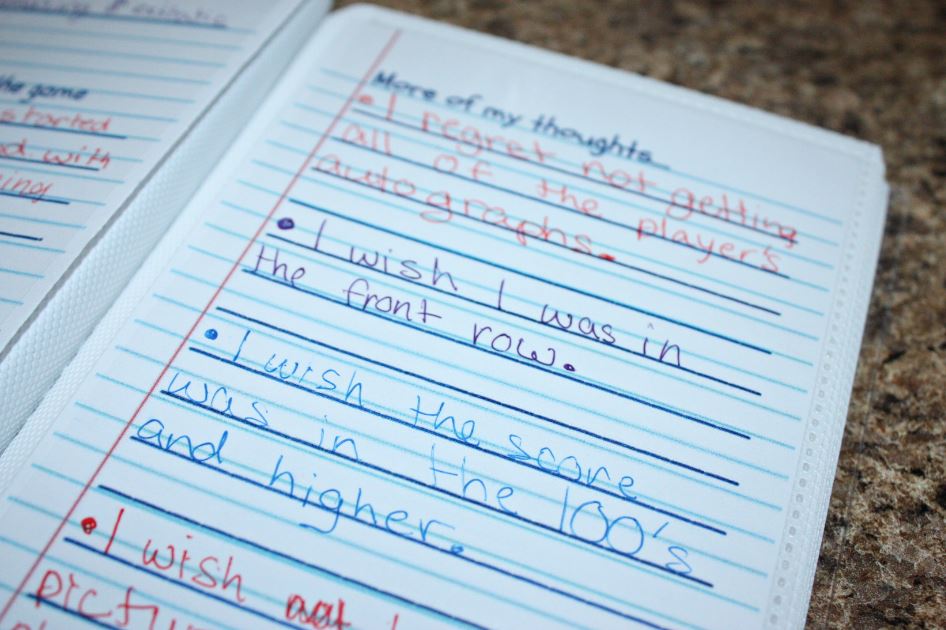 the game
started
with
More of my thoughts
• I regret not getting
all of the player's
autographs.
• I wish I was in
the front row.
• I wish the score
was in the 100's
and higher.
• I wish